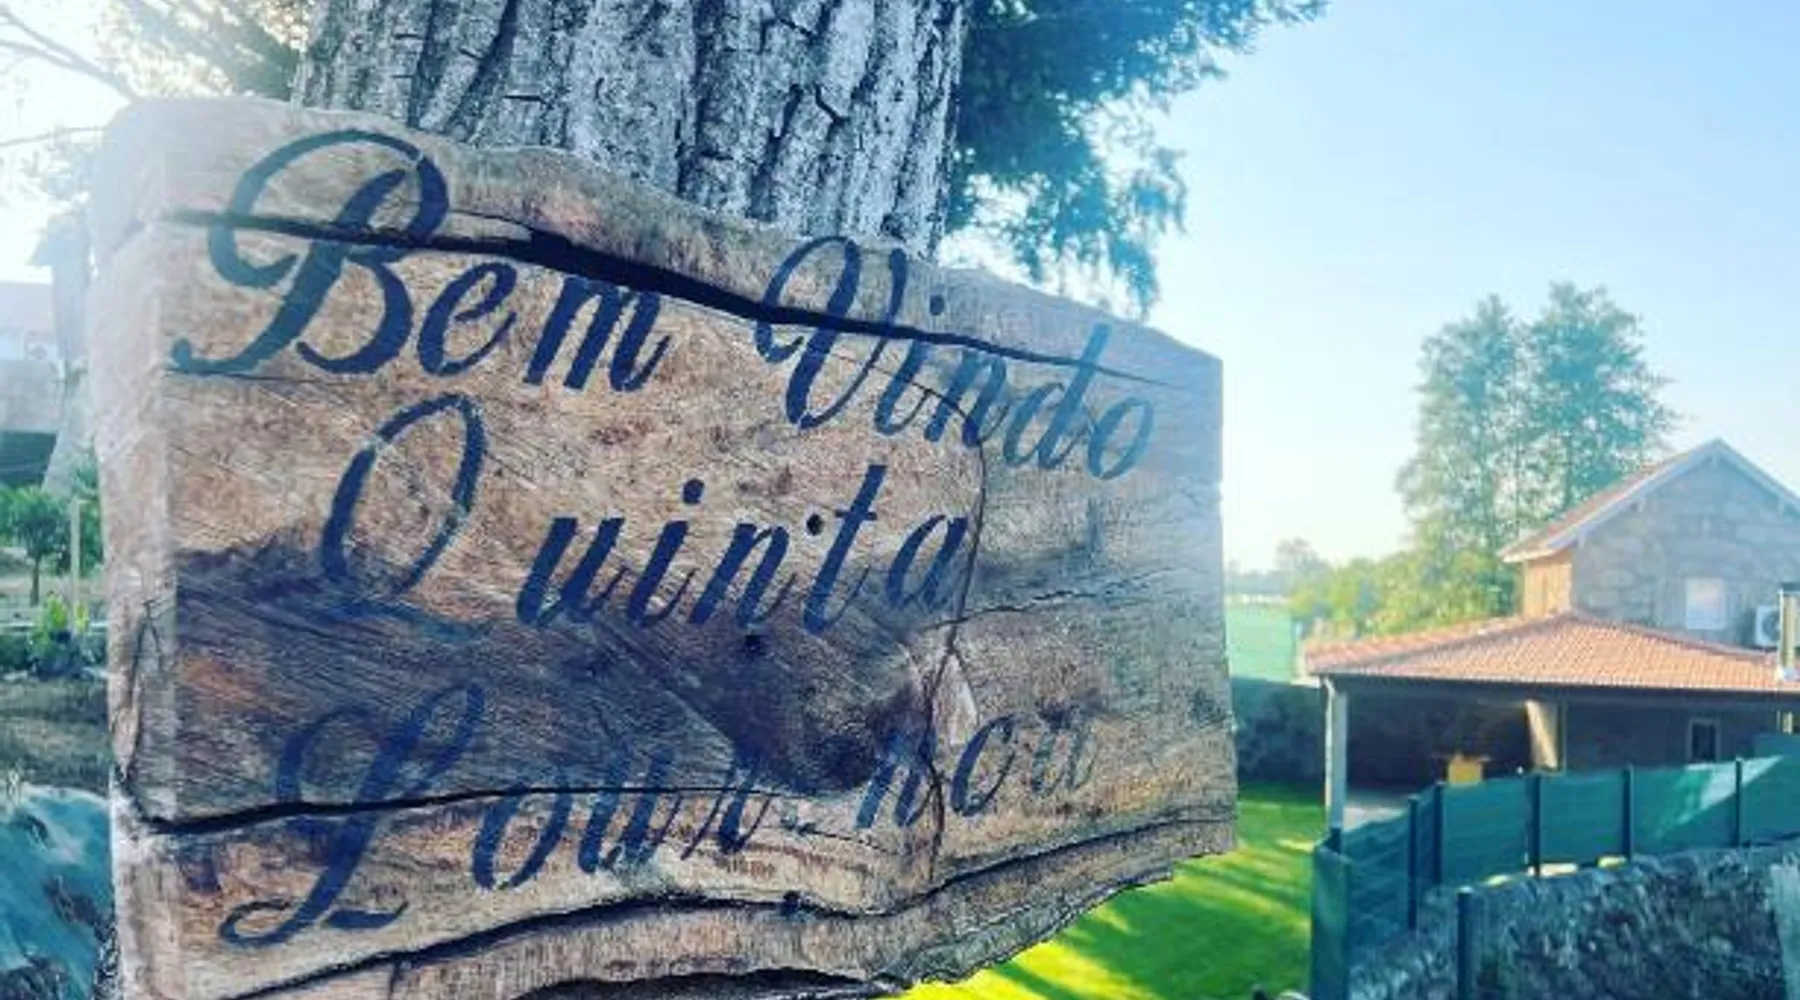 Bem Vindo
Quinta
Lourença